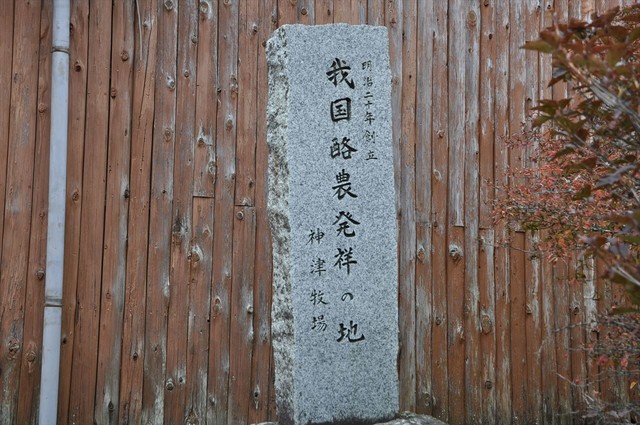 明治二十年創立
我国酪農発祥の地
神津牧場